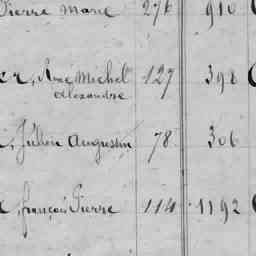 Pierre Marie 276 910
René Michel 127 398
Alexandre
Julien Augustin 78 306
françois Pierre 114 1192